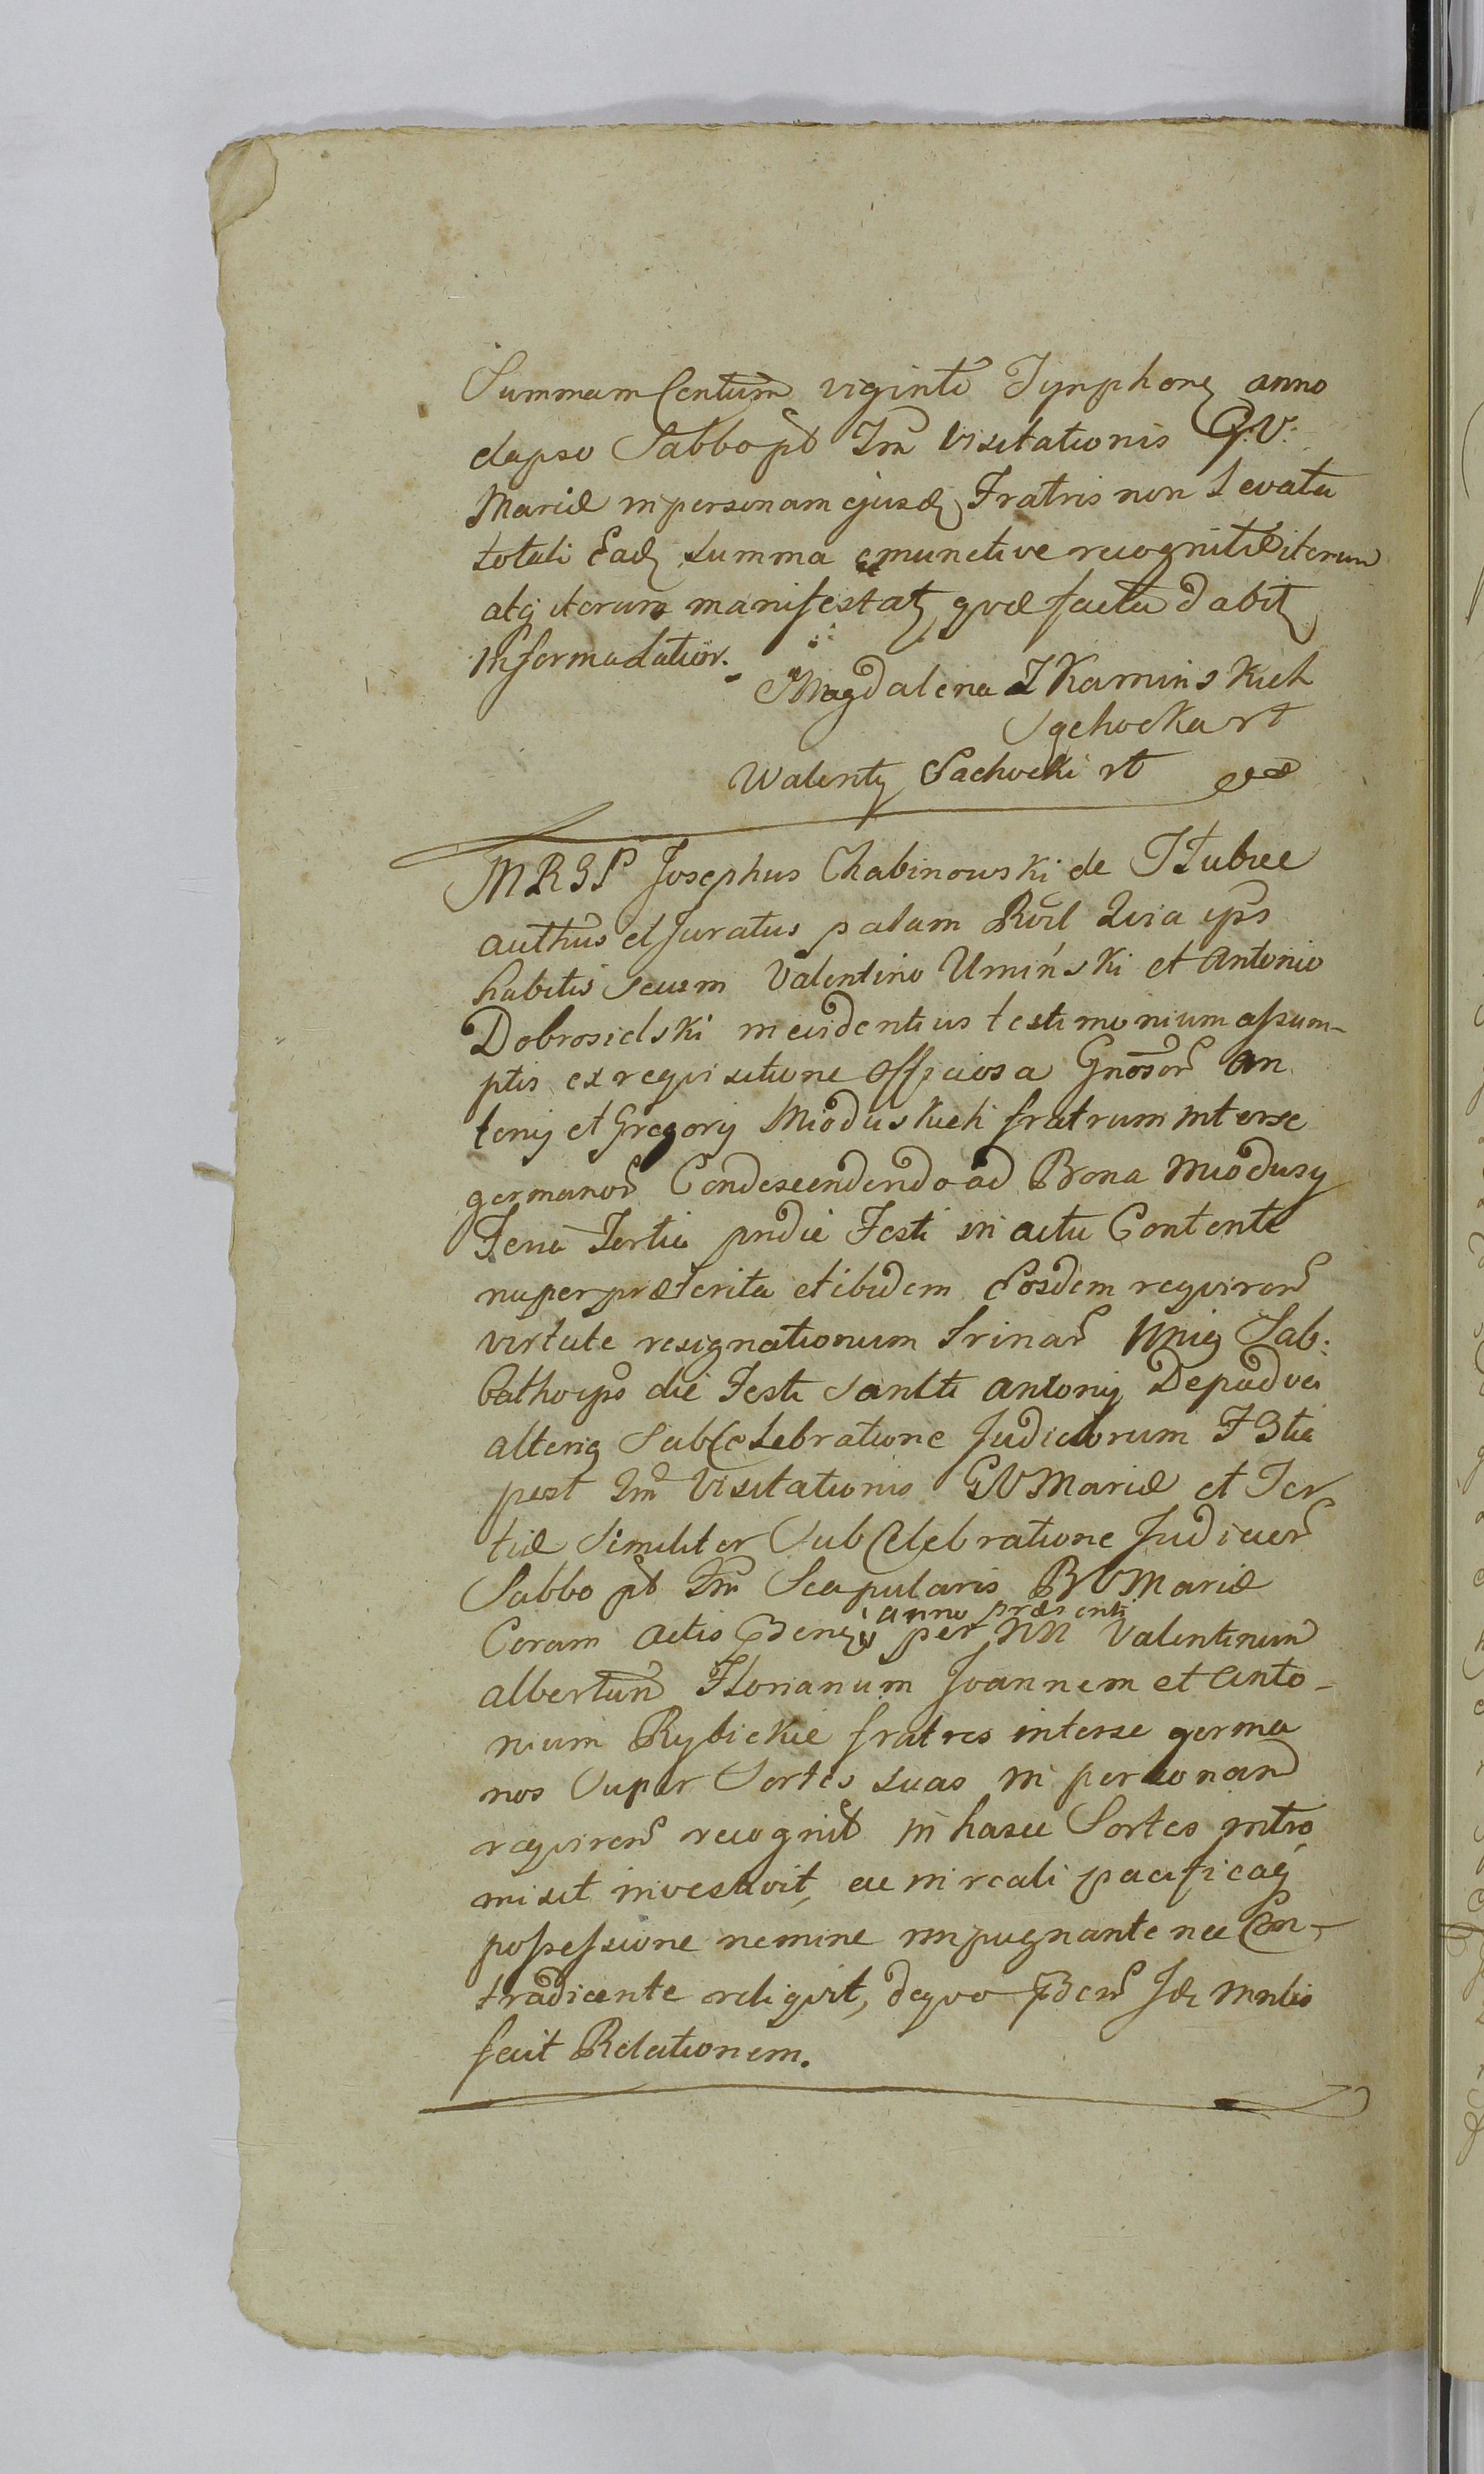 Summam Centum viginti Tynphonȩ anno
elapso Sabbo pt Fm Visitationis G:V:
Mariæ in personam ejusdȩ Fratris non Levata
totali Eadȩ summa emunctive recognitæ iterum
atq iterum manifestatȩ qvæ facta dabitȩ
Informadation.
Magdalena Z Kaminskich
Sachocka rt
Walenty Sachocki rt
MRGP Josephus Chabinowski de Hubice
authus et juratus palam Rcvit Qvia ips
habitis secum Valentino Umiński et Antonio
Dobrosielski in evidentius testimonium assum-
ptis ex reqvisitione officiosa Gnosor An
tonij et Gregorij Mioduskich fratrum interse
germanor Condescendendo ad Bona Miodusy
Feria Tertia pridie Festi in actu Contenti
nuper præterita et ibidem Eosdem reqviren
virtute resignationum trinar Uniq Sab:
batho ipso die Festi Sancti Antonij De padva
alteriq Sub Celebratione Judiciorum F 3tia
post Fm Visitationis GVMariæ et Ter
tiæ Similiter Sub Celebratione Judicior
Sabbo pt Fm Scapularis BVMariæ
anno præsenti
Coram Actis per NN Valentinum
Albertum Florianum Joannem et Anto-
nium Rybickie fratres interse germa
nos Super Sortes suas in personam
reqviren recognit in hasce Sortes intro
misit investivit, ac in reali pacificaq
possessione nemine impugnante nec Con-
tradicente reliqvit, deqvo Idȩ Mnlis
fecit Relationem.